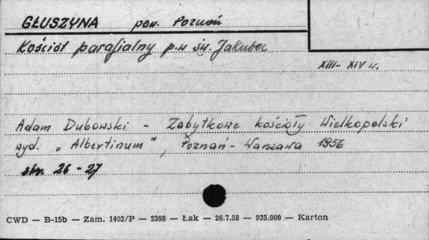 GŁUSZYNA pow. Poznań
Kościół parafialny p.w św. Jakuba
XIII-XIV w.
Adam Dubowski - Zabytkowe kościoły Wielkopolski
wyd. „Albertinum", Poznań-Warszawa 1956
str. 26-27
CWD — B-15b — Zam. 1402/P — 2398 — Łak — 26.7.58 — 935.000 — Karton